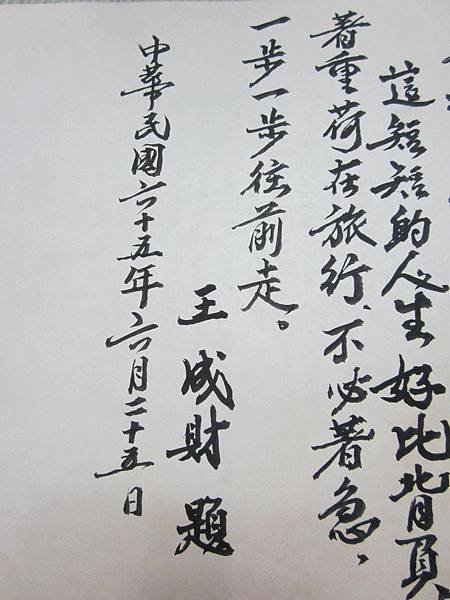 這短短的人生好比背負
著重荷在旅行、不必著急,
一步一步往前走。
王成財 題
中華民國六十五年六月二十五日